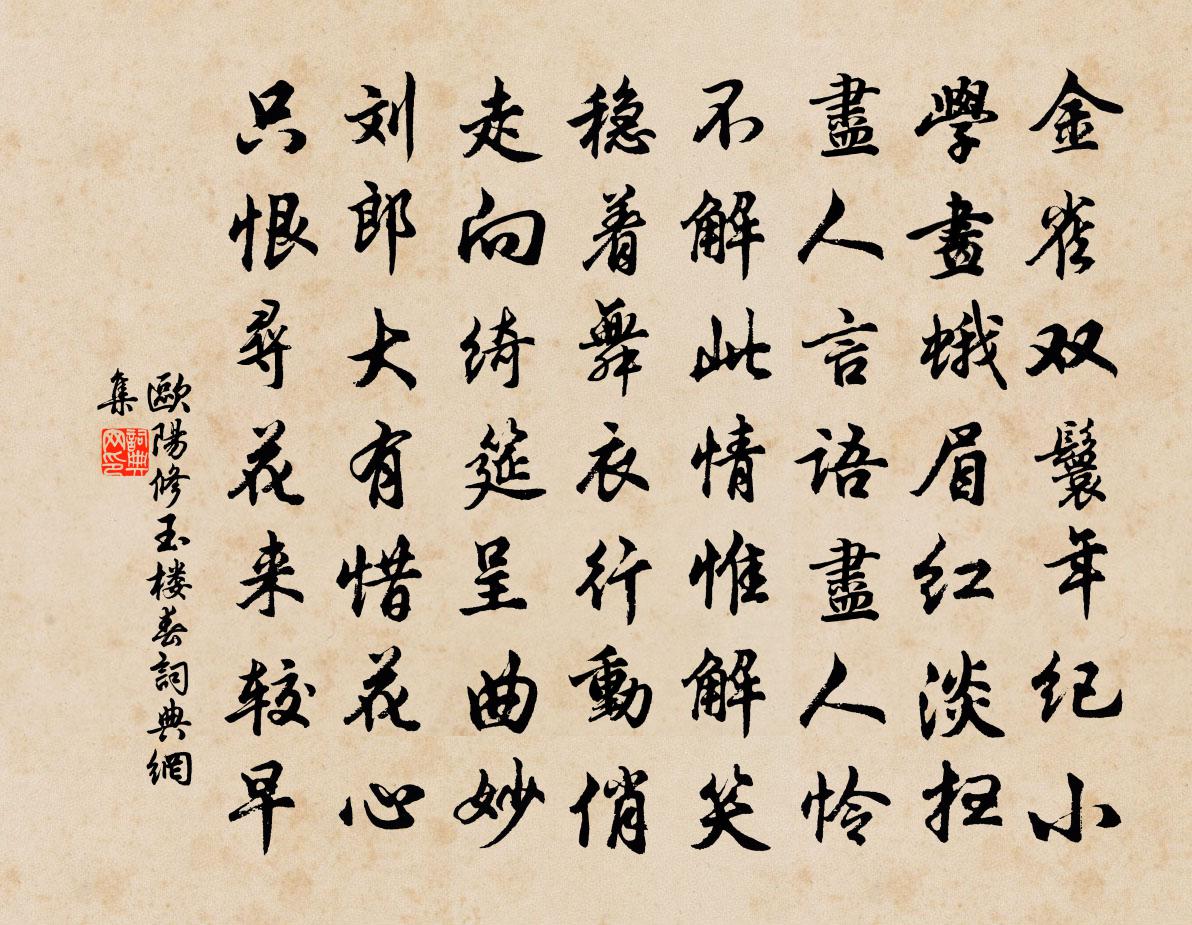 金雀双鬟年纪小
學畫蛾眉红淡扫
盡人言語盡人怜
不解此情惟解笑
稳着舞衣行動俏
走向绮筵呈曲妙
刘郎大有惜花心
只恨尋花来较早
歐陽修玉楼春詞典網
集
詞典
网印